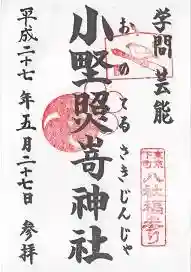 学問 芸能
小野照崎神社
おのてるさきじんじゃ
平成二十七年五月二十七日 参拝
東京下町
八社福参り